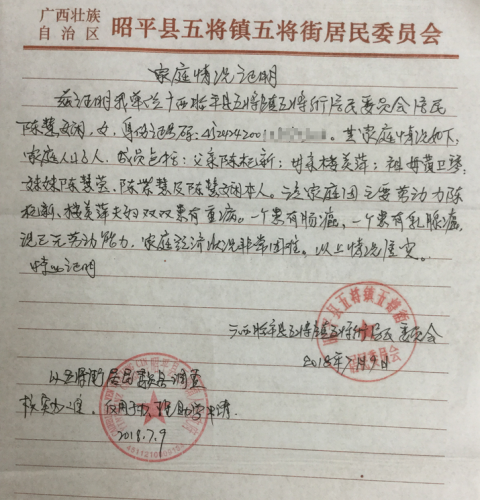 广西壮族
自治区 昭平县五将镇五将街居民委员会
家庭情况证明
兹证明我单位广西昭平县五将镇五将街居民委员会居民
陈慧娴，女，身份证号码：4524242001 其家庭情况如下，
家庭人口6人，成员包括：父亲陈 新；母亲 美萍；祖母黄卫琴
妹妹陈慧莹、陈紫慧及陈慧娴本人。该家庭因主要劳动力陈
新、 美萍夫妇双双患有重病。一个患有肠癌，一个患有乳腺癌，
现已无劳动能力，家庭经济状况非常困难。以上情况属实。
特此证明
广西昭平县五将镇五将街居民委员会
2018年7月9日
以五将街居民委员会调查
核实为准，仅用于办理助学申请.
2018.7.9